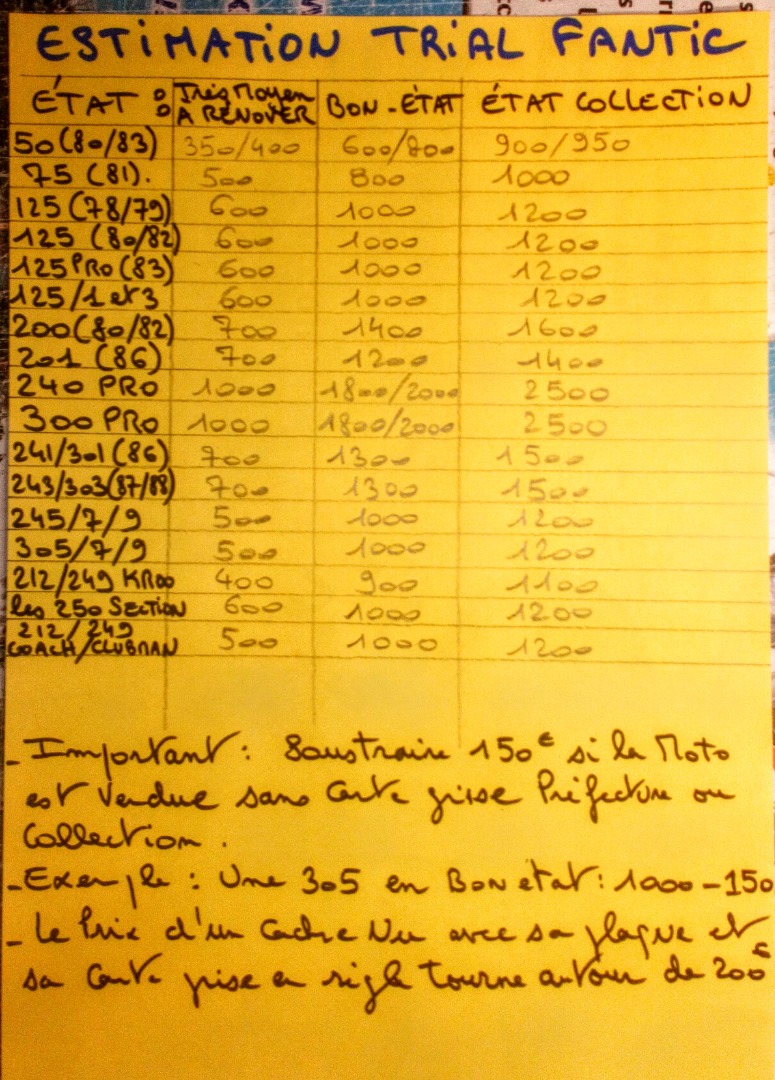 ESTIMATION TRIAL FANTIC
ÉTAT : Très Moyen A RÉNOVER BON-ÉTAT ÉTAT COLLECTION
50 (80/83) 350/400 600/800 900/950
75 (81). 500 800 1000
125 (78/79) 600 1000 1200
125 (80/82) 600 1000 1200
125 PRO (83) 600 1000 1200
125/1 et 3 600 1000 1200
200 (80/82) 700 1400 1600
201 (86) 700 1200 1400
240 PRO 1000 1800/2000 2500
300 PRO 1000 1800/2000 2500
241/301 (86) 700 1300 1500
243/303 (87/88) 700 1300 1500
245/7/9 500 1000 1200
305/7/9 500 1000 1200
212/249 KROO 400 900 1100
les 250 SECTION 600 1000 1200
212/249
COACH/CLUBMAN 500 1000 1200
- Important : Soustraire 150€ si la Moto
est vendue sans Carte grise Préfecture ou
Collection.
- Exemple : Une 305 en Bon état : 1000-150
- Le Prix d'un Cadre Nu avec sa plaque et
sa Carte grise en règle tourne autour de 200€